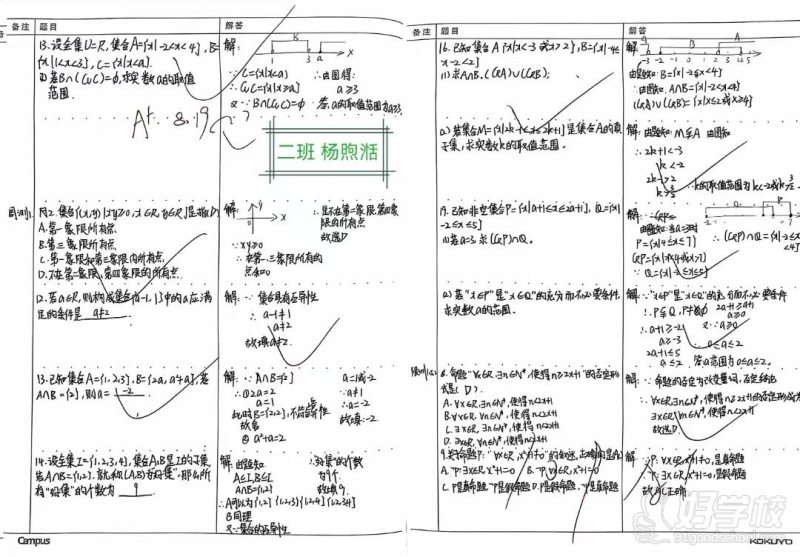 备注 题目 解答
13. 设全集U=R, 集合A={x|-2<x<4}, B=
{x|1<x<3}, C={x|x<a}.
(1) 若B∩(∁UC)=∅, 求实数a的取值
范围.
解:
B
1 3 a x
∵C={x|x<a} ∴由图得:
∴∁UC={x|x≥a} a≥3
又∵B∩(∁UC)=∅ 答: a的取值范围为a≥3.
A+ 8.19
二班 杨煦湉
周测1. 11. 集合{(x,y)|xy≥0, x∈R, y∈R}是指(D)
A. 第一象限所有点
B. 第三象限所有点
C. 第一象限和第三象限内所有点
D. 不在第二象限、第四象限的所有点
解:
y
x
∴是不在第二象限、第四象
限的所有点
故选D
∵xy≥0
∴在第一、三象限所有的
12. 若a∈R, 则构成集合{a-1, 1}中的a应满
足的条件是 a≠2
解: ∵集合具有互异性
∴a-1≠1
a≠2
故填a≠2.
13. 已知集合A={1,2,3}, B={2a, a²+a}, 若
A∩B={2}, 则a= -2
解: ∵A∩B={2}
∴①2a=2
a=1
此时B={2,2}, 不符合互异性
故舍
② a²+a=2
a=1或-2
∵a≠1
∴a=-2
故填:-2
14. 设全集I={1,2,3,4}, 集合A,B是I的子集
若A∩B={1,2}, 就称(A,B)为“好集”, 那么所
有“好集”的个数为 9
解: 由题知
A⊆I, B⊆I
A∩B={1,2}
∴A可以为{1,2} {1,2,3} {1,2,4} {1,2,3,4}
B同理
又∵集合的互异性
∴“好集”的个数
为9个
故填9.
Campus
备注 题目 解答
16. 已知集合A={x|x<-3或x>2}, B={x|-4≤
x-2<2}
(1) 求A∩B, (∁RA)∪(∁RB);
解:
A B A
-3 -2
由题知: B={x|-2≤x<4}
(2) 若集合M={x|2k-1≤x≤2k+1}是集合A的真
子集, 求实数k的取值范围.
解: 由题知: M⫋A 由图知
∴2k+1<-3
k<-2
2k-1>2
k>3/2
∴k的取值范围为k<-2或k>3/2
17. 已知非空集合P={x|a+1≤x≤2a+1}, Q={x|
-2≤x≤5}
(1) 若a=3, 求(∁RP)∩Q.
解:
P={x|4≤x≤7}
∁RP={x|x<4或x>7}
∵Q={x|-2≤x≤5}
∴(∁RP)∩Q={x|-2≤x
<4}
(2) 若“x∈P”是“x∈Q”的充分而不必要条件
求实数a的范围.
解: ∵“x∈P”是“x∈Q”的充分而不必要条件
∴P⫋Q, P≠∅ 2a+1≥a+1
∴a+1≥-2 a≥0
a≥-3
2a+1≤5 ∴0≤a≤2
a≤2 答: a范围为0≤a≤2.
8. 命题“∀x∈R, ∃n∈N*, 使得n≥2x+1”的否定形
式是( D ).
A. ∀x∈R, ∃n∈N*, 使得n<2x+1
B. ∀x∈R, ∀n∈N*, 使得n<2x+1
C. ∃x∈R, ∃n∈N*, 使得n<2x+1
D. ∃x∈R, ∀n∈N*, 使得n<2x+1
解: ∵命题的否定为改变量词, 否定结论
∴∀x∈R, ∃n∈N*, 使得n≥2x+1的否定形式为
∃x∈R, ∀n∈N*, 使得n<2x+1
故选D
C. P是真命题 D. P是假命题
故
正确
好学校
91goodschool.com
KOKUYO